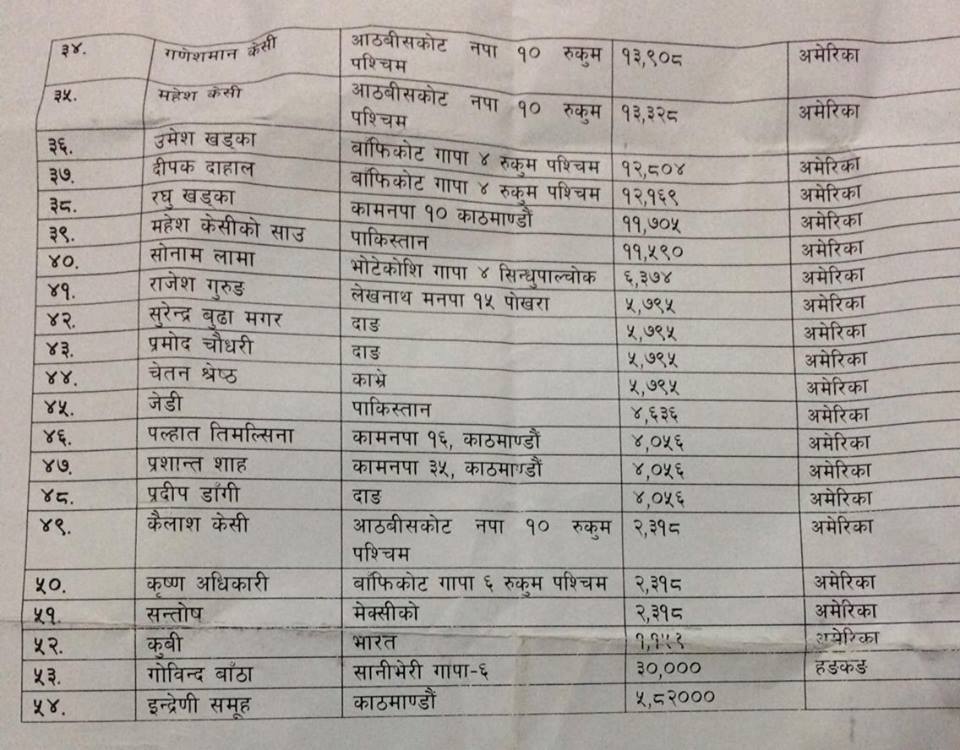 ३४. गणेशमान केसी आठबीसकोट नपा १० रुकुम १३,९०८ अमेरिका
पश्चिम
३५. महेश केसी आठबीसकोट नपा १० रुकुम १३,३२८ अमेरिका
पश्चिम
३६. उमेश खड्का बांफिकोट गापा ४ रुकुम पश्चिम १२,८०४ अमेरिका
३७. दीपक दाहाल बांफिकोट गापा ४ रुकुम पश्चिम १२,१६९ अमेरिका
३८. रघु खड्का कामनपा १० काठमाण्डौं ११,७०५ अमेरिका
३९. महेश केसीको साउ पाकिस्तान ११,५९० अमेरिका
४०. सोनाम लामा भोटेकोशि गापा ४ सिन्धुपाल्चोक ६,३७४ अमेरिका
४१. राजेश गुरुङ लेखनाथ मनपा १५ पोखरा ५,७९५ अमेरिका
४२. सुरेन्द्र बुढा मगर दाङ ५,७९५ अमेरिका
४३. प्रमोद चौधरी दाङ ५,७९५ अमेरिका
४४. चेतन श्रेष्ठ काभ्रे ५,७९५ अमेरिका
४५. जेडी पाकिस्तान ४,६३६ अमेरिका
४६. पल्हात तिमल्सिना कामनपा १६, काठमाण्डौं ४,०५६ अमेरिका
४७. प्रशान्त शाह कामनपा ३५, काठमाण्डौं ४,०५६ अमेरिका
४८. प्रदीप डाँगी दाङ ४,०५६ अमेरिका
४९. कैलाश केसी आठबीसकोट नपा १० रुकुम २,३१८ अमेरिका
पश्चिम
५०. कृष्ण अधिकारी बांफिकोट गापा ६ रुकुम पश्चिम २,३१८ अमेरिका
५१. सन्तोष मेक्सीको २,३१८ अमेरिका
५२. कुबी भारत अमेरिका
५३. गोविन्द बाँठा सानीभेरी गापा-६ ३०,००० हङकङ
५४. इन्द्रेणी समूह काठमाण्डौं ५,८२०००